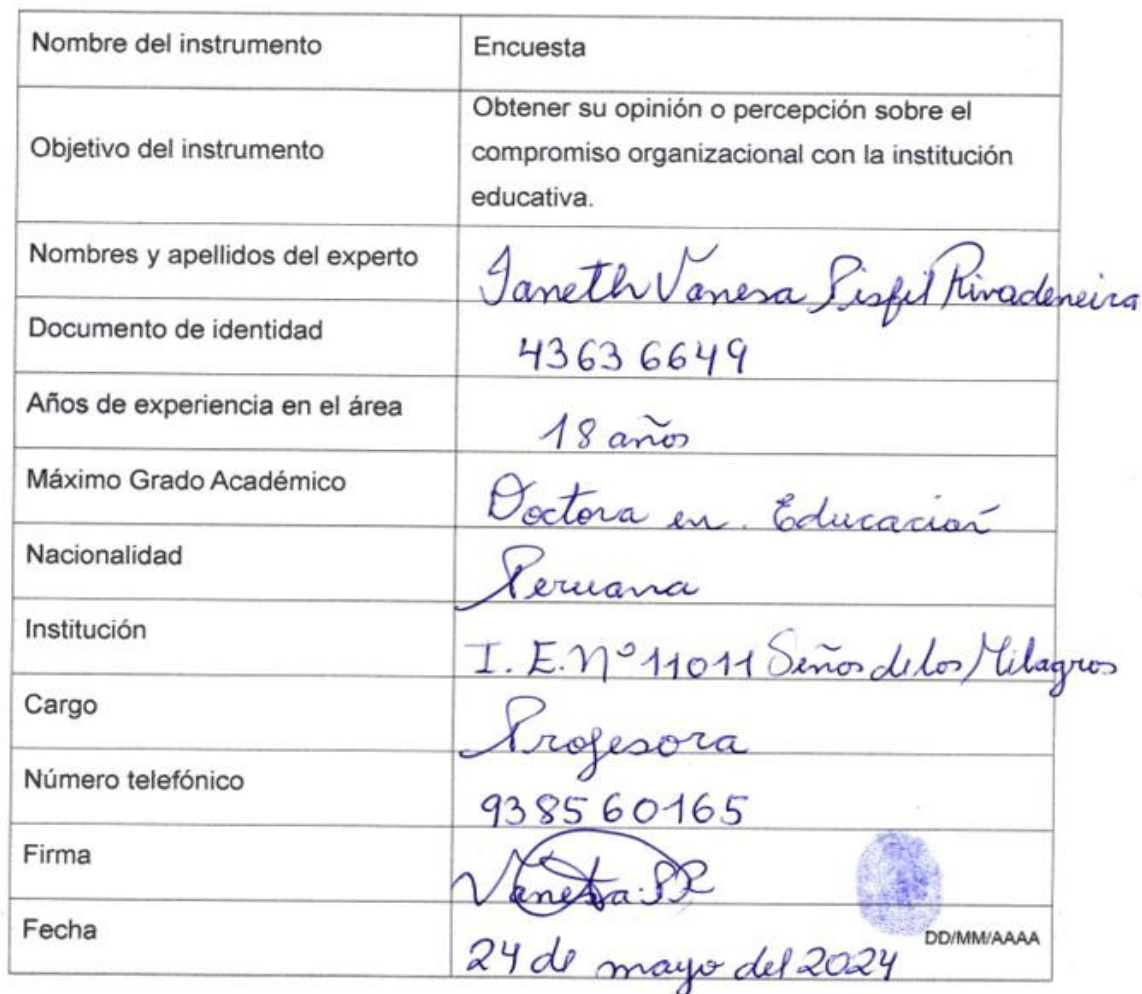 Nombre del instrumento
Encuesta
Objetivo del instrumento
Obtener su opinión o percepción sobre el
compromiso organizacional con la institución
educativa.
Nombres y apellidos del experto
Janeth Vanesa Pisfil Rivadeneira
Documento de identidad
43636649
Años de experiencia en el área
18 años
Máximo Grado Académico
Doctora en Educación
Nacionalidad
Peruana
Institución
I. E. N° 11011 Señor de los Milagros
Cargo
Profesora
Número telefónico
938560165
Firma
Vanessa PR
Fecha
DD/MM/AAAA
24 de mayo del 2024